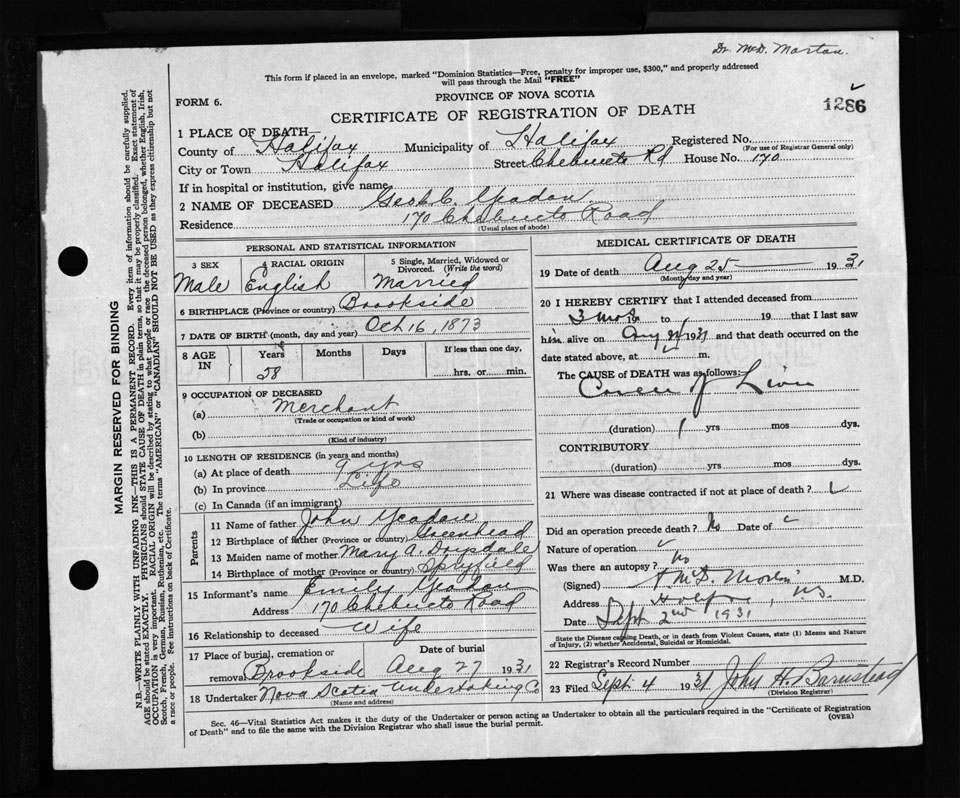 Dr. McD. Morton.
This form if placed in an envelope, marked "Dominion Statistics—Free, penalty for improper use, $300," and properly addressed
will pass through the Mail "FREE"
PROVINCE OF NOVA SCOTIA
FORM 6.
CERTIFICATE OF REGISTRATION OF DEATH
1286
1 PLACE OF DEATH
County of Halifax Municipality of Halifax Registered No.
(For use of Registrar General only)
City or Town Halifax Street Chebucto Rd House No. 170
If in hospital or institution, give name
2 NAME OF DECEASED Geo. C. Yeadon
Residence 170 Chebucto Road
(Usual place of abode)
PERSONAL AND STATISTICAL INFORMATION
3 SEX 4 RACIAL ORIGIN 5 Single, Married, Widowed or
Divorced. (Write the word)
Male English Married
6 BIRTHPLACE (Province or country) Brookside
7 DATE OF BIRTH (month, day and year) Oct 16, 1873
8 AGE IN Years Months Days If less than one day,
58 hrs. or min.
9 OCCUPATION OF DECEASED
(a) Merchant
(Trade or occupation or kind of work)
(b)
(Kind of industry)
10 LENGTH OF RESIDENCE (in years and months)
(a) At place of death 9 yrs
(b) In province Life
(c) In Canada (if an immigrant)
Parents
11 Name of father John Yeadon
12 Birthplace of father (Province or country) Greenhead
13 Maiden name of mother Mary A. Drysdale
14 Birthplace of mother (Province or country) Spryfield
15 Informant's name Emily Yeadon
Address 170 Chebucto Road
16 Relationship to deceased Wife
17 Place of burial, cremation or removal Date of burial
Brookside Aug 27 1931
18 Undertaker Nova Scotia Undertaking Co
(Name and address)
MEDICAL CERTIFICATE OF DEATH
19 Date of death Aug 25 1931
(Month, day and year)
20 I HEREBY CERTIFY that I attended deceased from
3 mos 19 to 19 that I last saw
him alive on Aug 1931 and that death occurred on the
date stated above, at m.
The CAUSE of DEATH was as follows:
Cancer of Liver
(duration) 1 yrs mos dys.
CONTRIBUTORY
(duration) yrs mos dys.
21 Where was disease contracted if not at place of death?
Did an operation precede death? No Date of
Nature of operation
Was there an autopsy? No
(Signed) A McD. Morton M.D.
Address Halifax, N.S.
Date Sept 2nd 1931
State the Disease causing Death, or in death from Violent Causes, state (1) Means and Nature
of Injury, (2) whether Accidental, Suicidal or Homicidal.
22 Registrar's Record Number
23 Filed Sept 4 1931 John H. Barnstead
(Division Registrar)
Sec. 46—Vital Statistics Act makes it the duty of the Undertaker or person acting as Undertaker to obtain all the particulars required in the "Certificate of Registration
of Death" and to file the same with the Division Registrar who shall issue the burial permit.
(OVER)
MARGIN RESERVED FOR BINDING
N.B.—WRITE PLAINLY WITH UNFADING INK—THIS IS A PERMANENT RECORD. Every item of information should be carefully supplied.
AGE should be stated EXACTLY. PHYSICIANS should STATE CAUSE OF DEATH in plain terms, so that it may be properly classified. Exact statement of
OCCUPATION is very important. RACIAL ORIGIN will be described by stating to what people or race the deceased person belonged, whether English, Irish,
Scotch, French, German, Russian, Ruthenian, etc. The terms "AMERICAN" or "CANADIAN" SHOULD NOT BE USED as they express citizenship but not
a race or people. See instructions on back of Certificate.